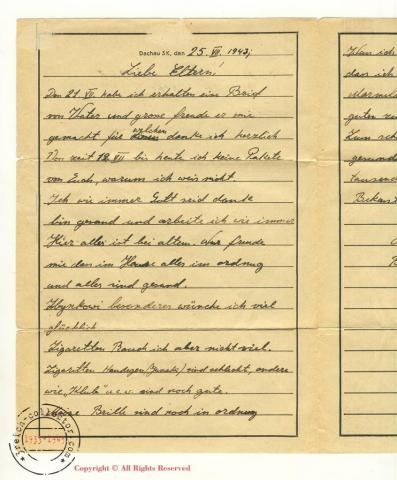 Dachau 3K, den 25. VII. 1943;
Liebe Eltern!
Den 21. VII. habe ich erhalten ein Brief
von Vater und grosse freude er mir
gemacht für welchen danke ich herzlich
Von zeit 12. VII bis heute ich keine Pakete
von Euch, warum ich weis nicht.
Ich wie immer Gott seid dank
bin gesund und arbeite ich wie immer
Hier alles ist bei altem. War freude
mir das im Hause alles im ordnug
und alles sind gesund.
besonderes wünche ich viel
glücklich
Zigaretten Rauch ich aber nicht viel.
Zigaretten sind schlecht, andere
wie "Klub" u.s.w. sind noch gute.
Meine Brille sind noch in ordnug
Wan ich
das ich
Marmela
guten
Zum sch
gesund
tausend
Bekannt
3reich-collector.com
1933-1945
Copyright © All Rights Reserved